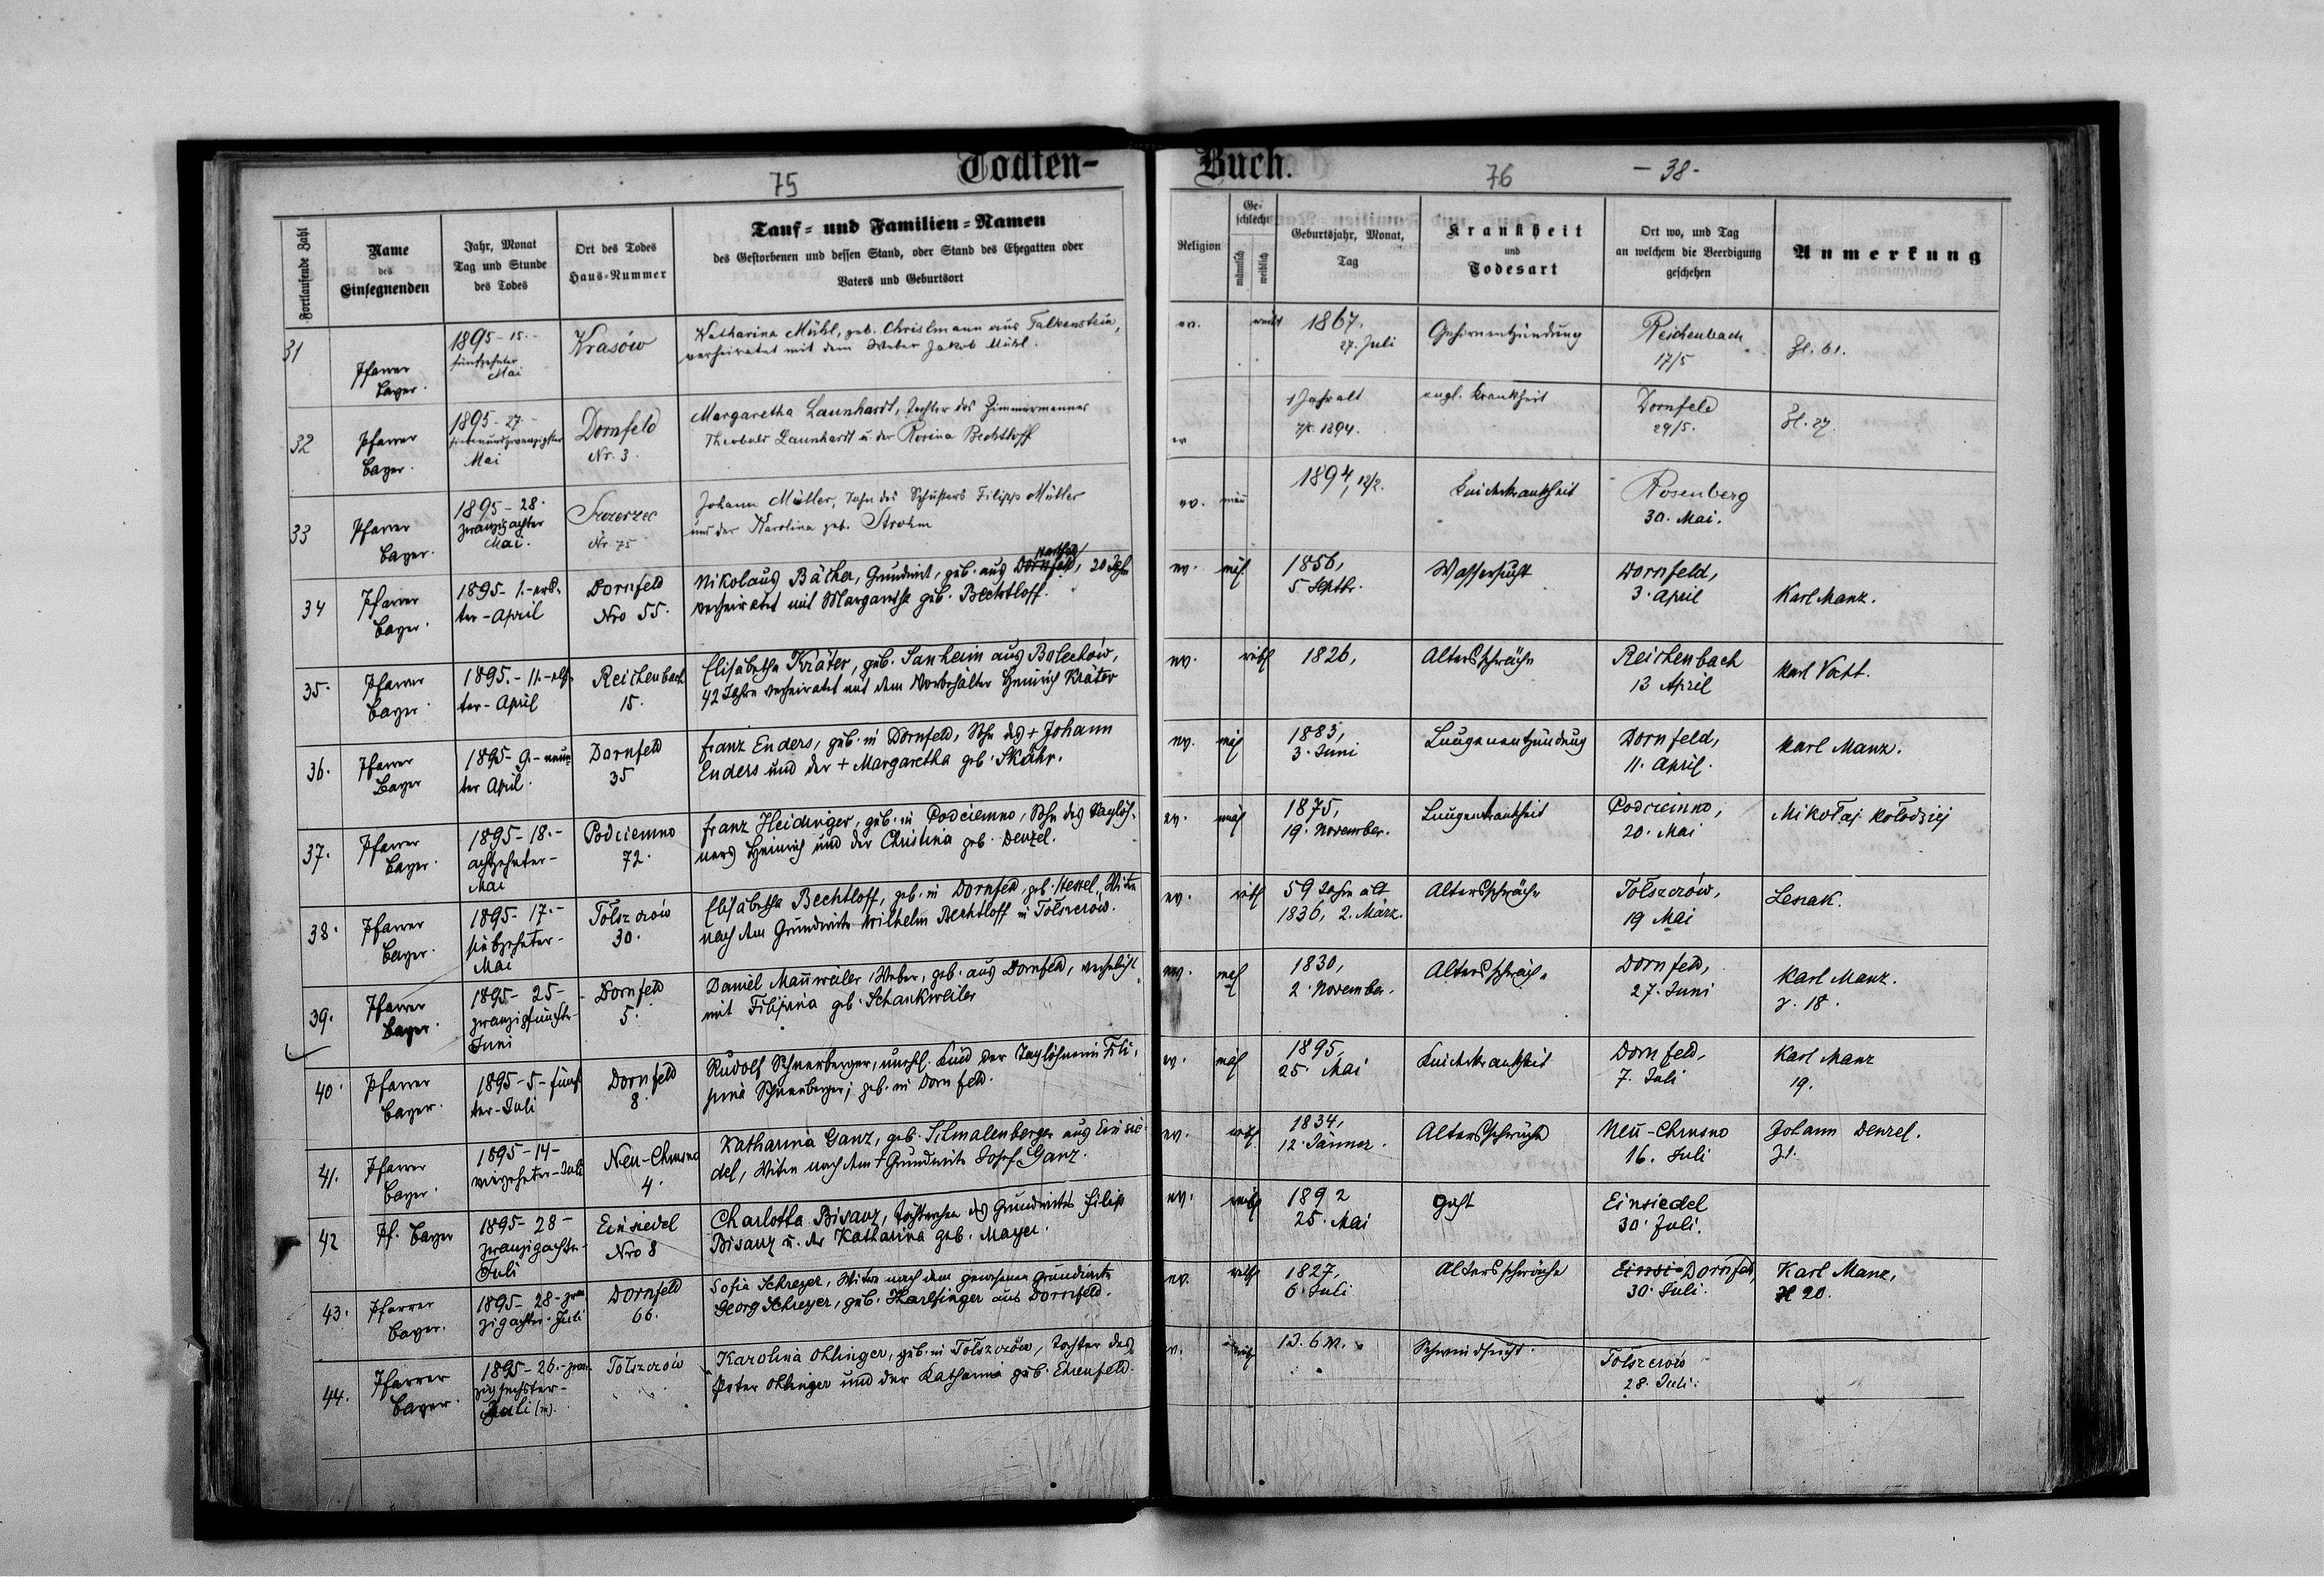 Todten-Buch.
75
76
- 38 -
Fortlaufende Zahl
Name
des
Einsegnenden
Jahr, Monat
Tag und Stunde
des Todes
Ort des Todes
Haus-Nummer
Tauf- und Familien-Namen
des Gestorbenen und dessen Stand, oder Stand des Ehegatten oder
Vaters und Geburtsort
Religion
Geschlecht
männlich
weiblich
Geburtsjahr, Monat,
Tag
Krankheit
und
Todesart
Ort wo, und Tag
an welchem die Beerdigung
geschehen
Anmerkung
31
Pfarrer
Bayer.
1895 - 15. -
fünfzehnter
Mai
Krasów
Katharina Mühl, geb. Christmann aus Falkenstein,
verheiratet mit dem Weber Jakob Mühl.
ev.
weibl
1867.
27. Juli
Gehirnentzündung
Reichenbach
17/5
Zl. 61.
32
Pfarrer
Bayer.
1895 - 27. -
siebenundzwanzigster
Mai
Dornfeld
Nr. 3.
Margaretha Launhardt, Tochter des Zimmermannes
Theobald Launhardt u. der Rosina Bechtloff
ev
1 Jahr alt
1894.
engl. Krankheit
Dornfeld
29/5.
Zl. 27.
33
Pfarrer
Bayer.
1895 - 28.
zwanzigachter
Mai.
Szczerzec
Nr. 75
Johann Müller, Sohn des Schusters Filipp Müller
und der Karolina geb. Strohm
ev.
1894, 12/2.
Kinderkrankheit
Rosenberg
30. Mai.
34
Pfarrer
Bayer.
1895 - 1. - ers-
ter - April
Dornfeld
Nro 55.
Nikolaus Bäcker, Grundwirt, geb. aus Dornfeld, 20 Jahre
verheiratet mit Margaretha geb. Bechtloff.
ev.
1850,
5 Septbr.
Wassersucht
Dornfeld,
3. April
Karl Manz.
35.
Pfarrer
Bayer.
1895. - 11. - elf-
ter - April
Reichenbach
15.
Elisabetha Kräter, geb. Sanheim aus Bolechów,
42 Jahre verheiratet mit dem Vorbehälter Heinrich Kräter
ev.
weibl
1826,
Altersschwäche
Reichenbach
13 April
Karl Vogt.
36.
Pfarrer
Bayer
1895 - 9. - neun-
ter April.
Dornfeld
35
Franz Enders, geb. in Dornfeld, Sohn des + Johann
Enders und der + Margaretha geb.
ev.
1883,
3. Juni
Lungenentzündung
Dornfeld,
11. April.
Karl Manz.
37.
Pfarrer
Bayer.
1895 - 18. -
achtzehnter -
Mai
Podciemno
72.
Franz Heidinger, geb. in Podciemno, Sohn des Taglöh-
ners Heinrich und der Christina geb. Denzel.
ev.
1875,
19. November.
Lungenkrankheit
Podciemno,
20. Mai
Mikołaj Kołodziej
38.
Pfarrer
Bayer.
1895 - 17. -
siebzehnter -
Mai
Tołszczów
30.
Elisabetha Bechtloff, geb. in Dornfeld, geb. Hessel, Witwe
nach dem Grundwirte Wilhelm Bechtloff in Tołszczów.
ev.
weibl
59 Jahre alt
1836, 2. März.
Altersschwäche
Tołszczów,
19 Mai
Lesiak.
39.
Pfarrer
Bayer.
1895 - 25 -
zwanzigfünfte-
Juni
Dornfeld
5.
Daniel Mannweiler, Weber, geb. aus Dornfeld, verehelicht
mit Filipina geb. Schankweiler
ev.
1830,
2. November.
Altersschwäche
Dornfeld,
27. Juni
Karl Manz.
Z. 18.
40.
Pfarrer
Bayer.
1895 - 5 - fünf-
ter - Juli
Dornfeld
8.
Rudolf Schneeberger, unehl. Kind der Taglöhnerin Fili-
pina Schneeberger; geb. in Dornfeld.
ev.
1895,
25. Mai
Kinderkrankheit
Dornfeld,
7. Juli
Karl Manz
19.
41.
Pfarrer
Bayer.
1895 - 14 -
vierzehnter - Juli
Neu-Chrusno
4.
Katharina Ganz, geb. Schmalenberger aus Einsie-
del, Witwe nach dem + Grundwirte Josef Ganz.
ev.
weibl
1834,
12. Jänner.
Altersschwäche
Neu-Chrusno
16. Juli
Johann Denzel.
42
Pf. Bayer
1895 - 28 -
zwanzigachte-
Juli
Einsiedel
Nro 8
Charlotta Bisanz, Töchterchen des Grundwirtes Filip
Bisanz u. der Katharina geb. Mayer.
ev.
weibl
1892
25. Mai
Einsiedel
30. Juli.
43.
Pfarrer
Bayer.
1895 - 28 - zwan
zigachter - Juli
Dornfeld
66.
Sofia Schreyer, Witwe nach dem gewesenen Grundwirte
Georg Schreyer, geb. Harlfinger aus Dornfeld.
ev.
weibl
1827,
6. Juli
Altersschwäche
Einsi Dornfeld,
30. Juli.
Karl Manz,
20.
44.
Pfarrer
Bayer.
1895 - 26. - zwan-
zigsechster -
Juli
Tołszczów
Karolina Ohlinger, geb. in Tołszczów, Tochter des
Peter Ohlinger und der Katharina geb. Ehrenfeld.
ev.
1 J. 6 M.
Schwindsucht.
Tołszczów
28. Juli.